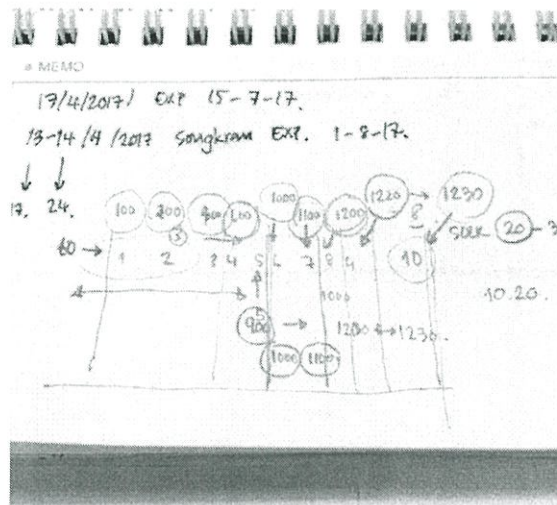 MEMO
17/4/2017 EXP 15-7-17.
13-14/4/2017 Songkran EXP. 1-8-17.
17. 24.
100 200 400 1000 1100 1200 1220 → 1230
8
20 - 3
60 → 1 2 3 4 5 6 7 8 9 10
10.20.
1000
900 → 1200 ↔ 1230.
1000 1100